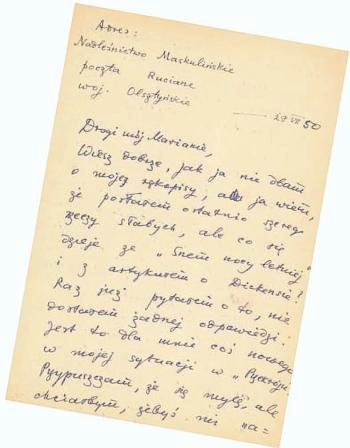 Adres:
Nadleśnictwo Maskulińskie
poczta Ruciane
woj. Olsztyńskie
29 VII 50
Drogi mój Marianie,
Wiesz dobrze, jak ja nie dbam
o moje rękopisy, ale ja wiem,
że posłałem ostatnio szereg
rzeczy słabych, ale co się
dzieje ze "Snem nocy letniej"
i z artykułem o Dickensie?
Raz już pytałem o to, nie
dostałem żadnej odpowiedzi.
Jest to dla mnie coś nowego
w mojej sytuacji w
Przypuszczam, że się mylę, ale
chciałbym, żebyś nie "a=